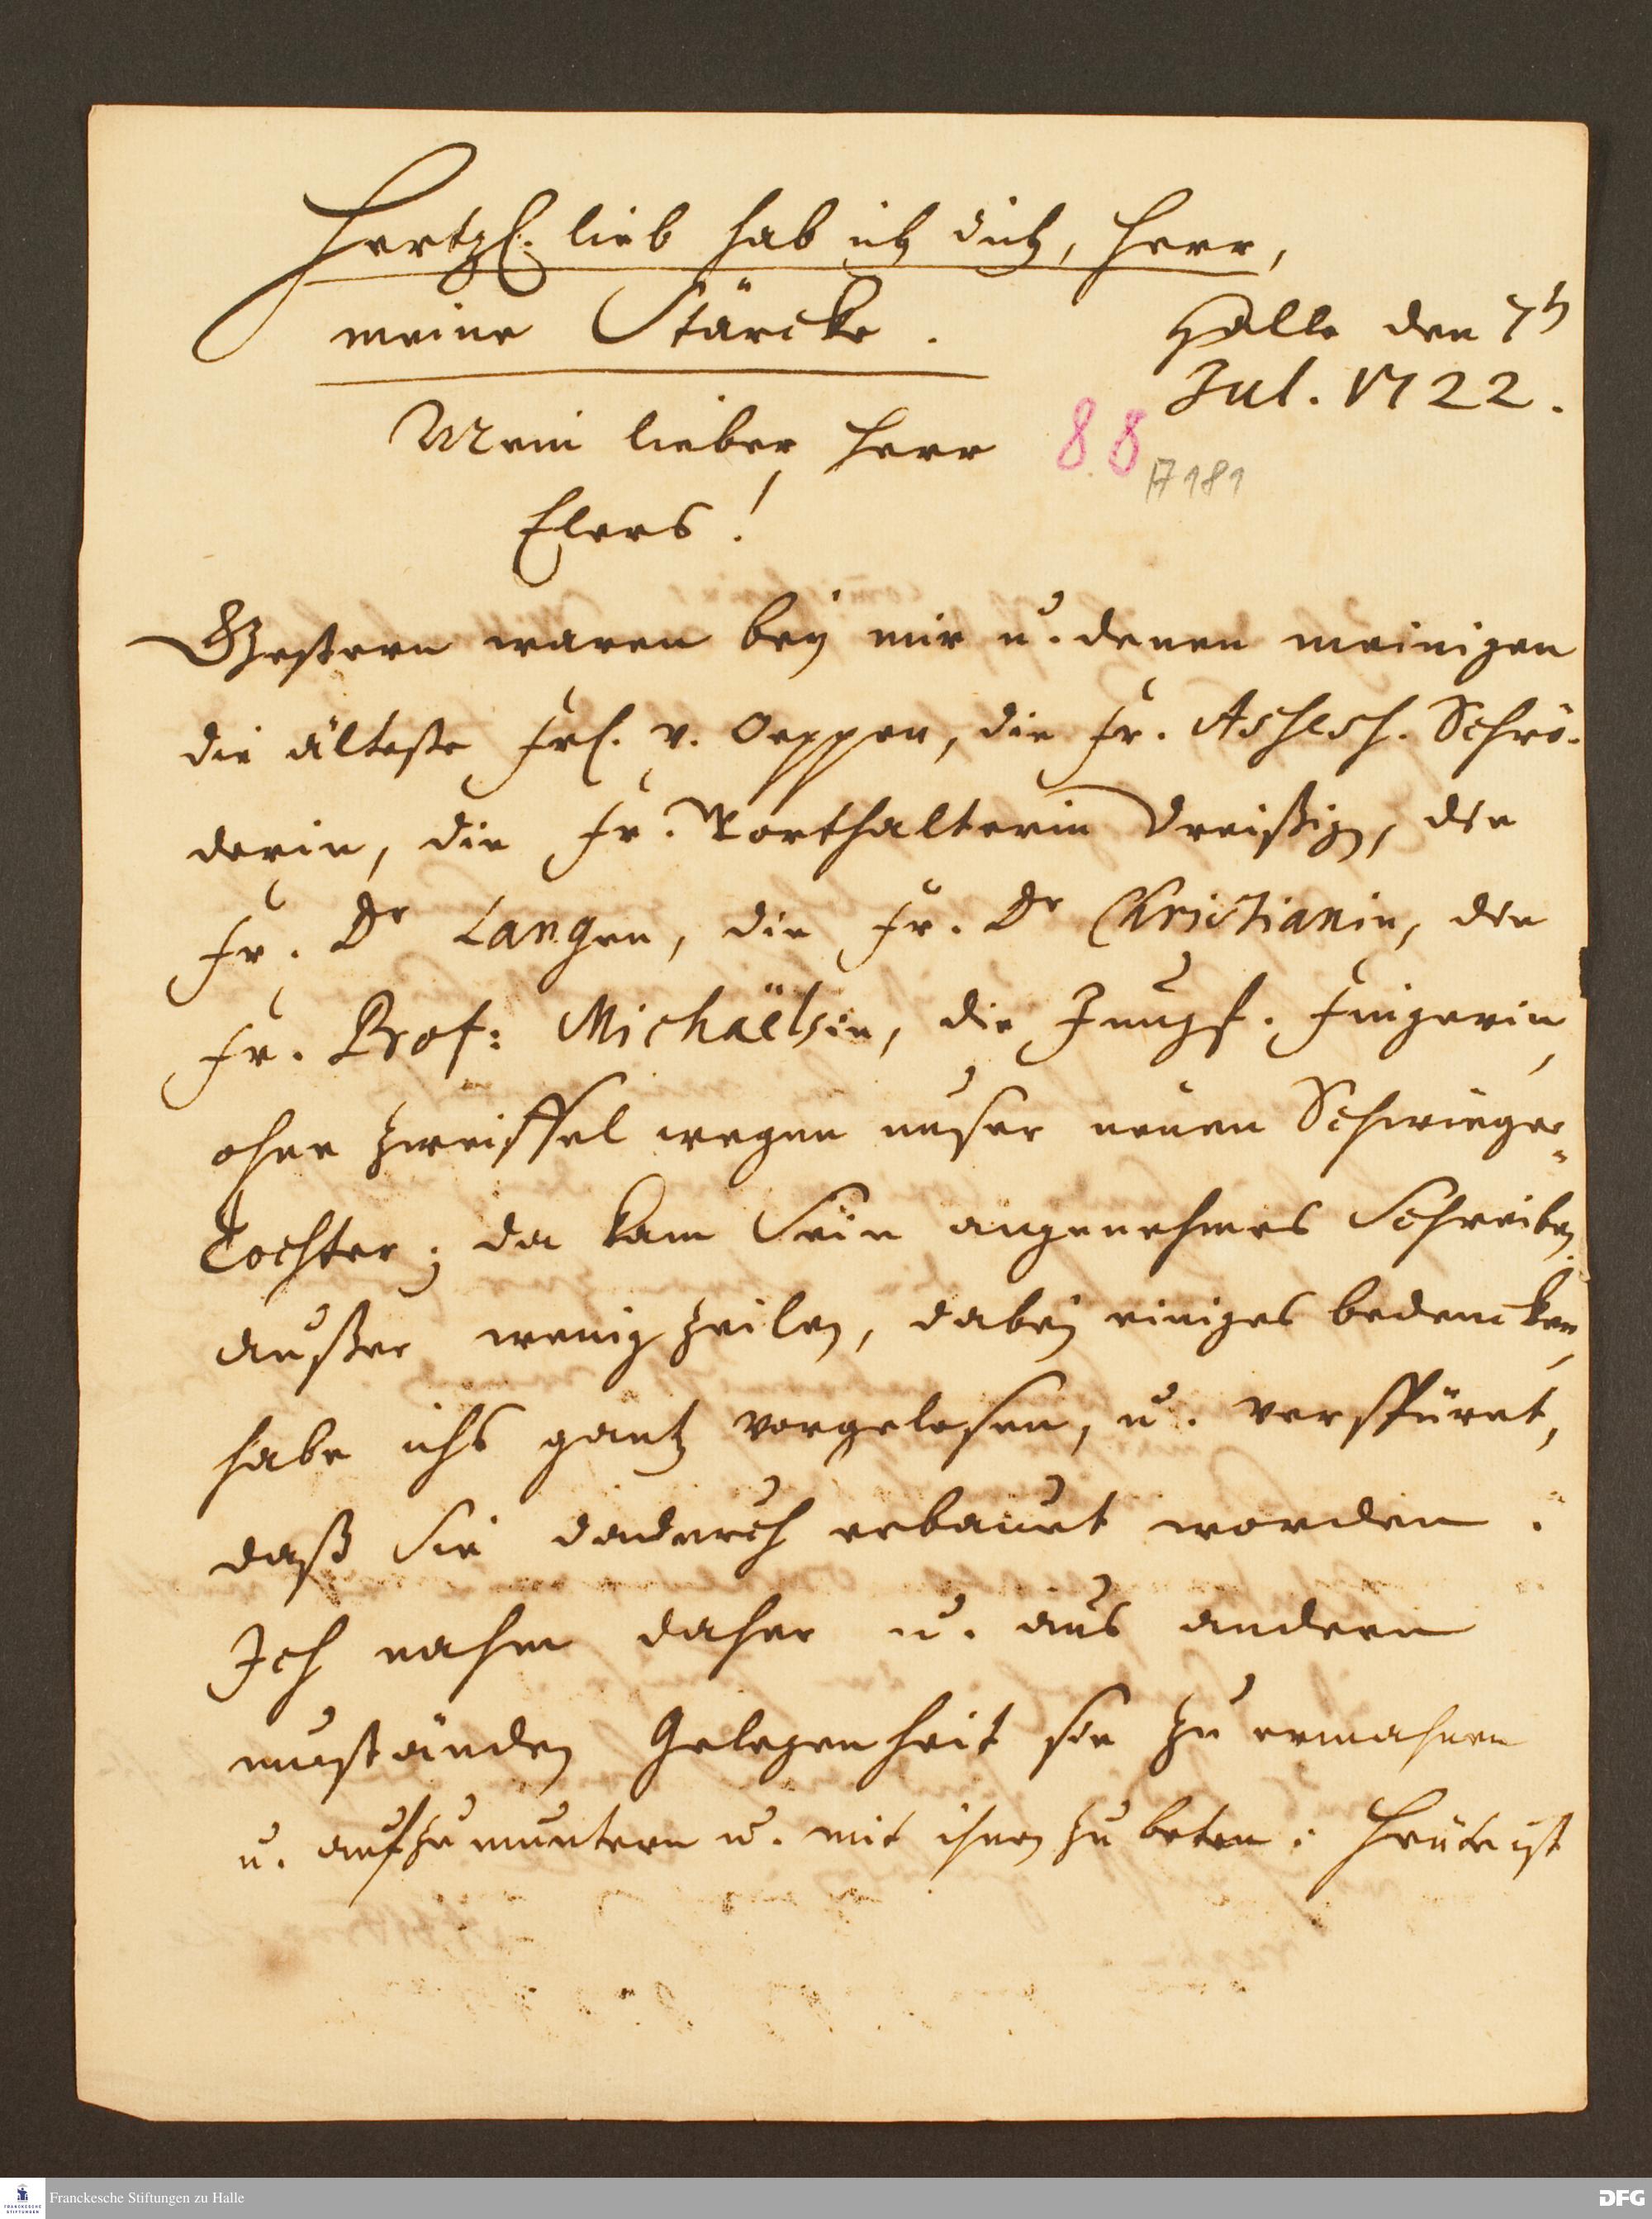 Hertzl. lieb hab ich dich, Herr,
meine Stärcke.
Halle den 7t
Jul. 1722.
Mein lieber Herr
88
A 181
Elers!
Gestern waren bey mir u. denen meinigen
die älteste Frl. v. Oeppen, die Fr. Schrö-
derin, die Fr. Dreißig, die
Fr. Dr Langen, die Fr. Dr Christianin, die
Fr. Prof: Michaëlsin, die Jungf. Fingerin,
ohne zweiffel wegen unser neuen Schwieger-
Tochter; da kam Sein angenehmes Schreiben.
außer wenig zeilen, dabey einiges bedencken,
habe ichs gantz vorgelesen, u. verspüret,
daß Sie dadurch erbauet worden.
Ich nahm daher u. aus andern
umständen Gelegenheit sie zu ermahnen
u. aufzumuntern u. mit ihnen zu beten: Heute ist
Franckesche Stiftungen zu Halle
FRANCKESCHE
STIFTUNGEN
DFG